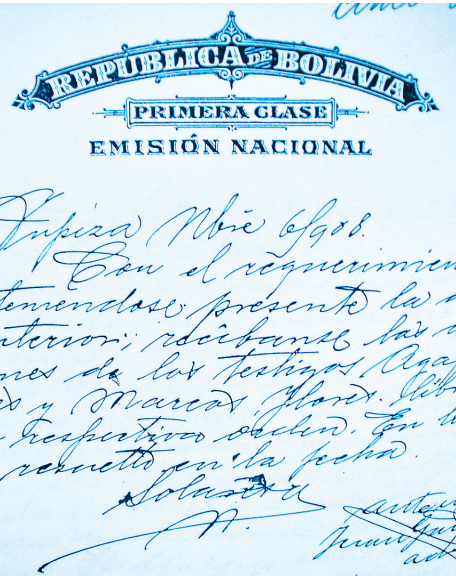 REPUBLICA DE BOLIVIA
PRIMERA CLASE
EMISIÓN NACIONAL
Tupiza Nbre 6/908.
Con el requerimien
temendose presente la a
terior; recíbanse las
nes de los testigos Aga
y Marcos Flores. líb
respectiva orden. En l
resuelto en la fecha.